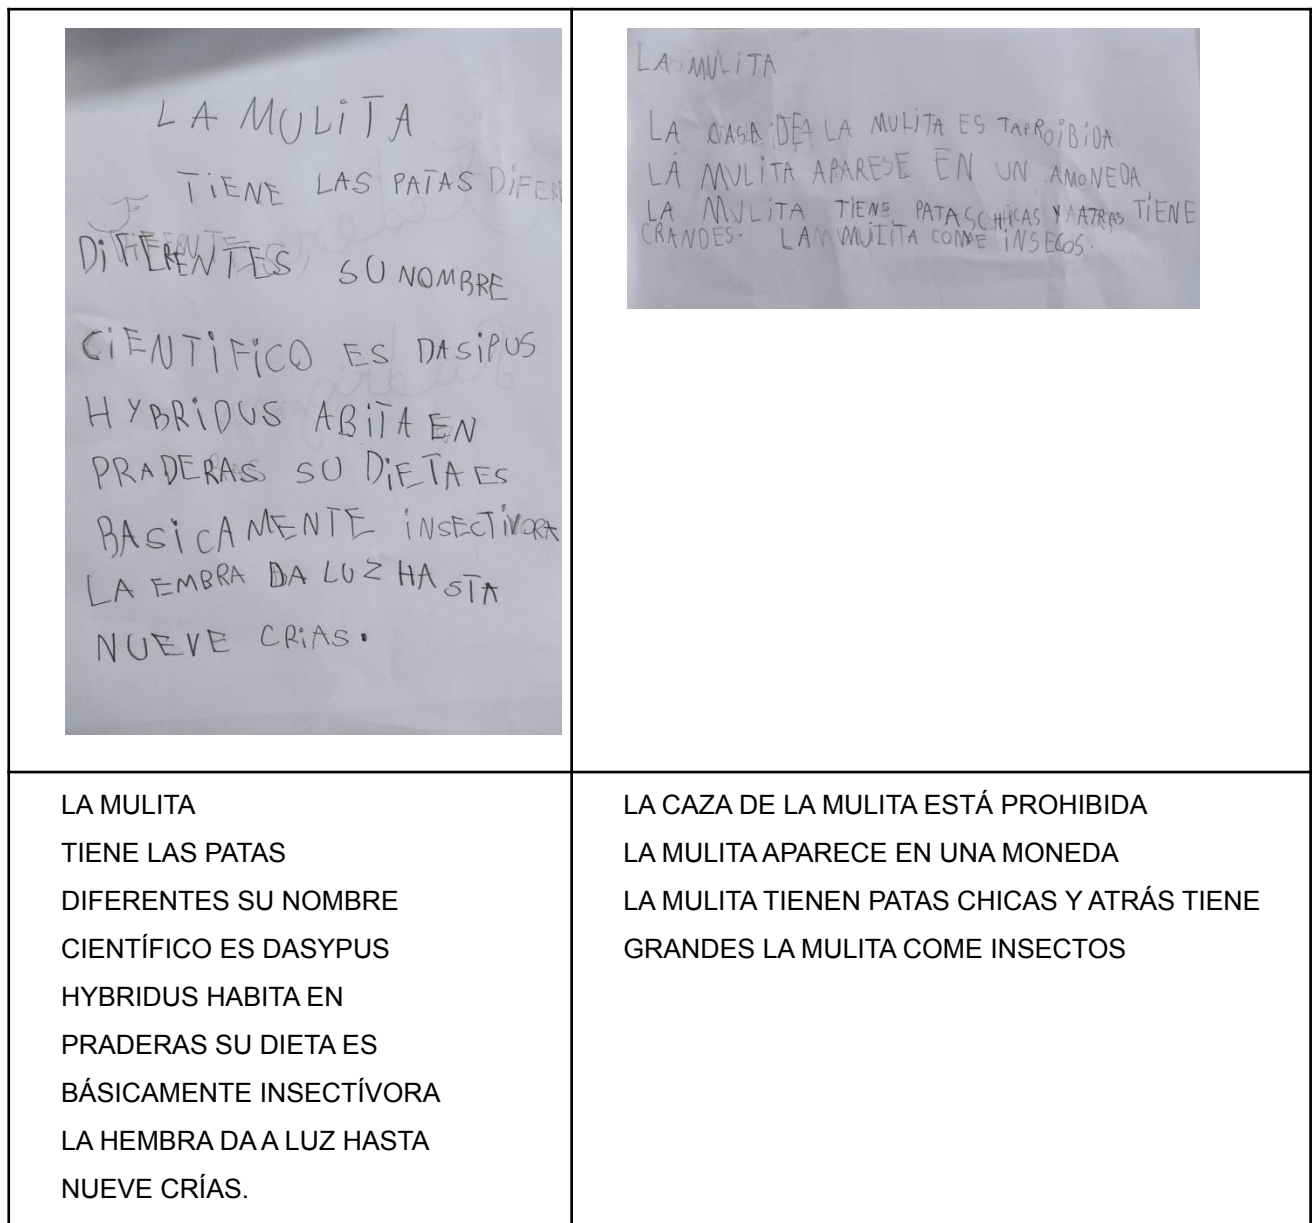 LA MULITA
TIENE LAS PATAS DIFER
DIFERENTES SU NOMBRE
CIENTIFICO ES DASIPUS
HYBRIDUS ABITA EN
PRADERAS SU DIETA ES
BASICAMENTE INSECTIVORA
LA EMBRA DA LUZ HASTA
NUEVE CRIAS.
LA MULITA
LA CASA DE LA MULITA ES TAPROIBIDA.
LA MULITA APARESE EN UN AMONEDA
LA MULITA TIENE PATASCHICAS Y AATRAS TIENE
GRANDES. LA MULITA COME INSECOS.
LA MULITA
TIENE LAS PATAS
DIFERENTES SU NOMBRE
CIENTÍFICO ES DASYPUS
HYBRIDUS HABITA EN
PRADERAS SU DIETA ES
BÁSICAMENTE INSECTÍVORA
LA HEMBRA DA A LUZ HASTA
NUEVE CRÍAS.
LA CAZA DE LA MULITA ESTÁ PROHIBIDA
LA MULITA APARECE EN UNA MONEDA
LA MULITA TIENEN PATAS CHICAS Y ATRÁS TIENE
GRANDES LA MULITA COME INSECTOS